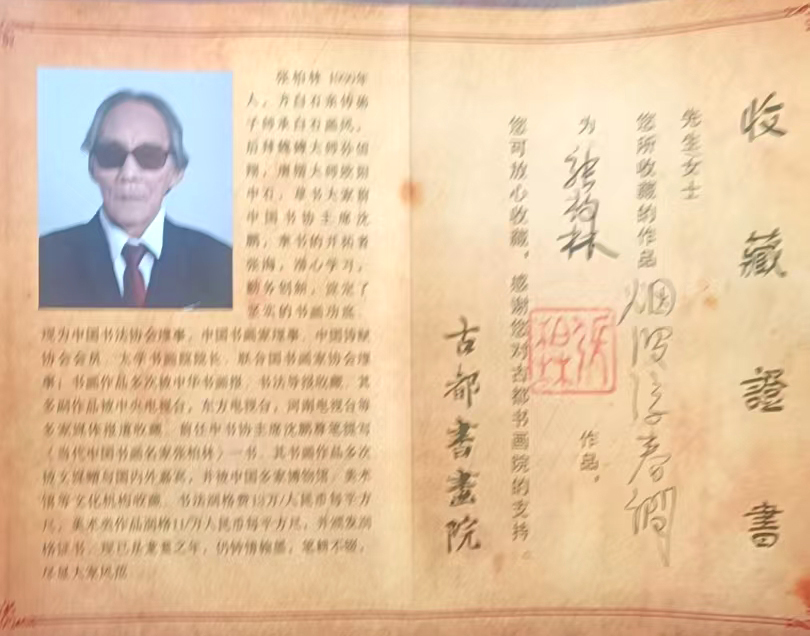 收藏證書
先生女士
您所收藏的作品
为 张柏林 作品，
您可放心收藏，感谢您对古都书画院的支持。
古都書畫院
张柏林
人，齐白石亲传弟
子师承白石画风，
中石，草书大家前
中国书协主席沈
鹏，隶书的开拓者
张海，潜心学习，
勤务创新，奠定了
坚实的书画功底。
现为中国书法协会理事，中国书画家理事，中国诗赋
协会会员，太学书画院院长，联合国书画家协会理
事；书画作品多次被中华书画报，书法导报收藏，其
多副作品被中央电视台，东方电视台，河南电视台等
多家媒体报道收藏，前任中书协主席沈鹏尊笔题写
《当代中国书画名家张柏林》一书，其书画作品多次
被文媒赠与国内外嘉宾，并被中国多家博物馆，美术
馆等文化机构收藏，书法润格费13万/人民币每平方
尺，美术类作品润格11万人民币每平方尺，并颁发润
格证书，现已是耄耋之年，仍钟情翰墨，笔耕不辍，
尽显大家风范